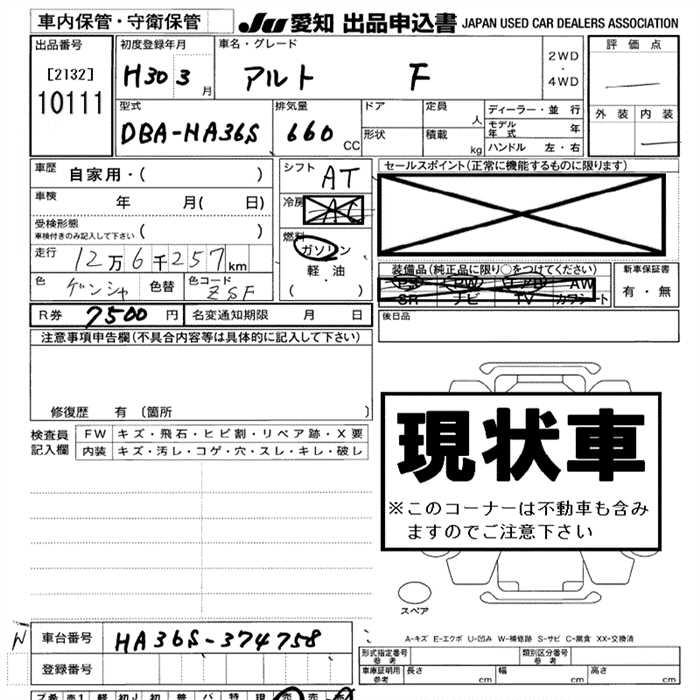 車内保管・守衛保管
JU 愛知 出品申込書 JAPAN USED CAR DEALERS ASSOCIATION
出品番号
[2132]
10111
初度登録年月
H30 3 月
車名・グレード
アルト F
2WD
・
4WD
評価点
外装 内装
型式
DBA-HA36S
排気量
660 CC
ドア
形状
定員 人
積載 kg
ディーラー・並行
モデル年式 年
ハンドル 左・右
車歴 自家用・( )
車検 年 月( 日)
受検形態
車検付きのみ記入して下さい ( )
走行 12万6千257km
色 ゲンシャ 色替 色コード ZSF
R券 7500 円 名変通知期限 月 日
シフト AT
冷房 AC
燃料
ガソリン
軽・油
( ・ )
セールスポイント(正常に機能するものに限ります)
装備品(純正品に限り○をつけてください)
PS PW エアB AW
SR ナビ TV カワシート
新車保証書
有・無
後日品
注意事項申告欄(不具合内容等は具体的に記入して下さい)
修復歴 有 〔箇所 〕
検査員記入欄
FW キズ・飛石・ヒビ割・リペア跡・X要
内装 キズ・汚レ・コゲ・穴・スレ・キレ・破レ
現状車
※このコーナーは不動車も含み
ますのでご注意下さい
スペア
A-キズ E-エクボ U-凹み W-補修跡 S-サビ C-腐食 XX-交換済
N 車台番号 HA36S-374758
登録番号
形式指定番号
参考
類別区分番号
参考
車庫証明用
参考
長さ cm 幅 cm 高さ cm